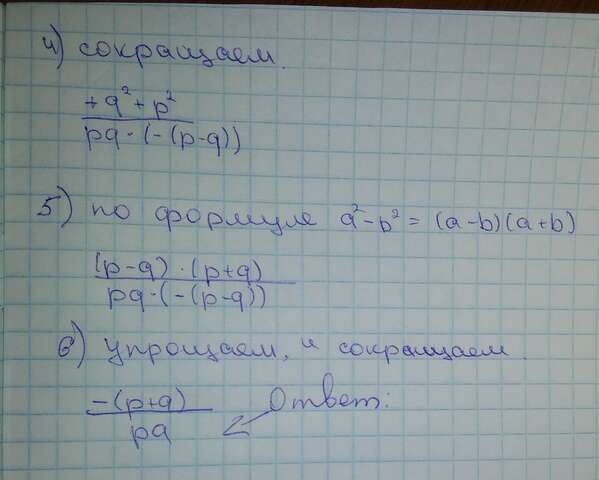 4) сокращаем.
+q² + p²
pq·(-(p-q))
5) по формуле a²-b² = (a-b)(a+b)
(p-q)·(p+q)
pq·(-(p-q))
6) упрощаем, и сокращаем.
-(p+q) Ответ:
pq